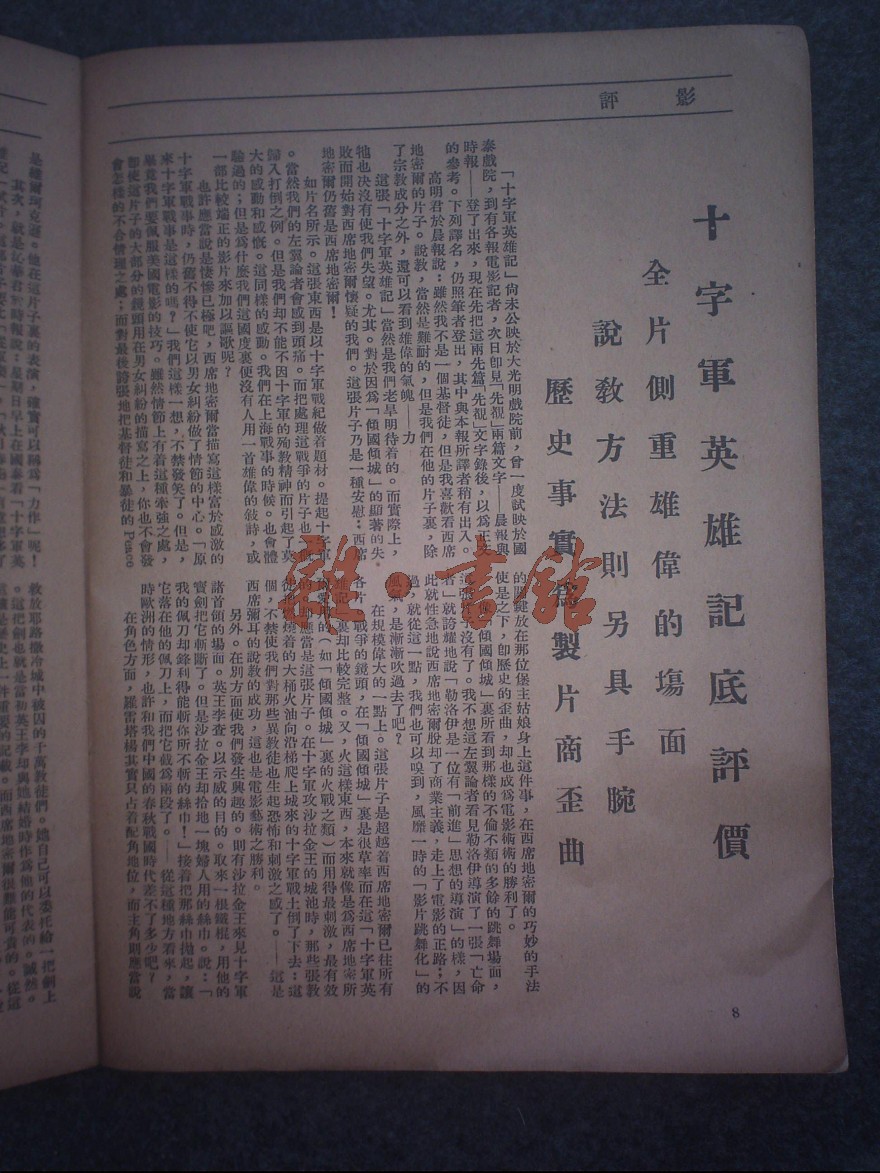 影評
十字軍英雄記底評價
全片側重雄偉的場面
說教方法則另具手腕
歷史事實為製片商歪曲
「十字軍英雄記」尚未公映於大光明戲院前，曾一度試映於國
泰戲院，到有各報電影記者，次日卽見「先覩」兩篇文字——晨報與
時報——登了出來，現在先把這兩先篇「先覩」文字錄後，以爲正文
的參考。下列譯名，仍照筆者登出，其中與本報所譯者稍有出入。
高明君於晨報說：雖然我不是一個基督徒，但是我喜歡看西席
地密爾的片子。說教，當然是難耐的，但是我們在他的片子裏，除
了宗教成分之外，還可以看到雄偉的氣魄——力
這張「十字軍英雄記」當然是我們老早期待着的。而實際上，
牠也決沒有使我們失望。尤其。對於因爲「傾國傾城」的顯著的失
敗而開始對西席地密爾懷疑的我們。這張片子乃是一種安慰：西席
地密爾仍舊是西席地密爾！
如片名所示。這張東西是以十字軍戰紀做着題材。提起十字軍
。當然我們的左翼論者會感到頭痛。而把處理這戰爭的片子也
歸入打倒之例。但是我們却不能不因十字軍的殉教精神而引起了莫
大的感動和感慨。這同樣的感動。我們在上海戰事的時候。也會體
驗過的；但是爲什麽我們這國度裏便沒有人用一首雄偉的敍詩，或
一部比較端正的影片來加以謳歌呢？
也許應當說是悽慘已極吧，西席地密爾當描寫這樣富於感激的
十字軍戰事時，仍舊不得不使它以男女糾紛做了情節的中心。「原
來十字軍戰事是這樣的嗎？」我們這樣一想，不禁發笑了。但是，
畢竟我們要佩服美國電影的技巧。雖然情節上有着這種牽強之處，
卽使這片子的大部分的鏡頭用在男女糾紛的描寫之上，你也不會發
會怎樣的不合情理之處；而對最後誇張地把基督徒和暴徒的 Peace
的關鍵放在那位堡主姑娘身上這件事，在西席地密爾的巧妙的手法
使是之下，卽歷史的歪曲，却也成爲電影術的勝利了。
「傾國傾城」裏所看到那樣的不倫不類的多餘的跳舞場面，
這張片沒有了。我不想這左翼論者看見勒洛伊導演了一張「亡命
者」就誇耀地說「勒洛伊是一位有「前進」思想的導演」的樣，因
此就性急地說西席地密爾脫却了商業主義，走上了電影的正路；不
過，就從這一點，我們也可以嗅到，風靡一時的「影片跳舞化」的
風氣，是漸漸吹過去了吧？
在規模偉大的一點上。這張片子是超越着西席地密爾已往所有
各片。戰爭的鏡頭，在「傾國傾城」裏是很草率而在這「十字軍英
雄記」裏却比較完整。又，火這樣東西，本來就像是爲西席地密所
用的（如「傾國傾城」裏的火戰之類）而用得最刺激，最有效
的却應當是這張片子。在十字軍攻沙拉金王的城池時，那些張教
從把燃燒着的大桶火油向沿梯爬上城來的十字軍戰士倒了下去：這
個，不禁使我們對那些異教徒也生起恐怖和刺激之感了。——這是
西席彌耳的說教的成功，這也是電影藝術之勝利。
另外。在別方面使我們發生興趣的。則有沙拉金王來見十字軍
諸首領的場面。英王李查。以示威的目的。取來一根鐵棍，用他的
寶劍把它斬斷了。但是沙拉金王却拾地一塊婦人用的絲巾。說：「
我的佩刀却鋒利得能斬你所不斬的絲巾！」接着把那絲巾拋起，讓
它落在他的佩刀上，而把它截爲兩段了。——從這種地方看來，當
時歐洲的情形，也許和我們中國的春秋戰國時代差不了多少吧？
在角色方面，羅雷塔楊其實只占着配角地位，而主角則應當說
8
是維爾珂克遜。他在這片子裏的表演，確實可以稱爲「力作」呢！
其次，就是記華君於時報說：星期日早上在國泰看「十字軍英
救放耶路撒冷城中被囚的千萬教徒們。她自己可以委托給一把劍上
。這把劍也就是當初英王李却與她結婚時作爲他的代表的。誠然。
雜·書館